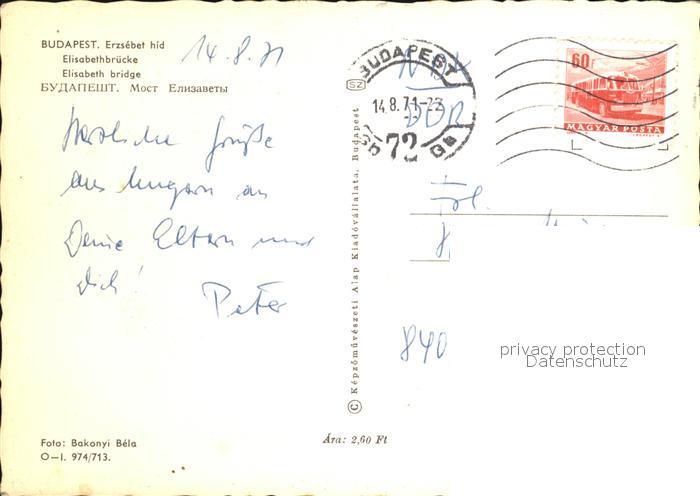 BUDAPEST. Erzsébet híd
Elisabethbrücke
Elisabeth bridge
БУДАПЕШТ. Мост Елизаветы
14.8.71
Herzliche Grüße
aus Ungarn an
Deine Eltern und
Dich!
Peter
Foto: Bakonyi Béla
O–I. 974/713.
Ára: 2,60 Ft
© Képzőművészeti Alap Kiadóvállalata, Budapest
SZ
BUDAPEST
14.8.71-22
72
DDR
60f
MAGYAR POSTA
Frl.
8
840
privacy protection
Datenschutz